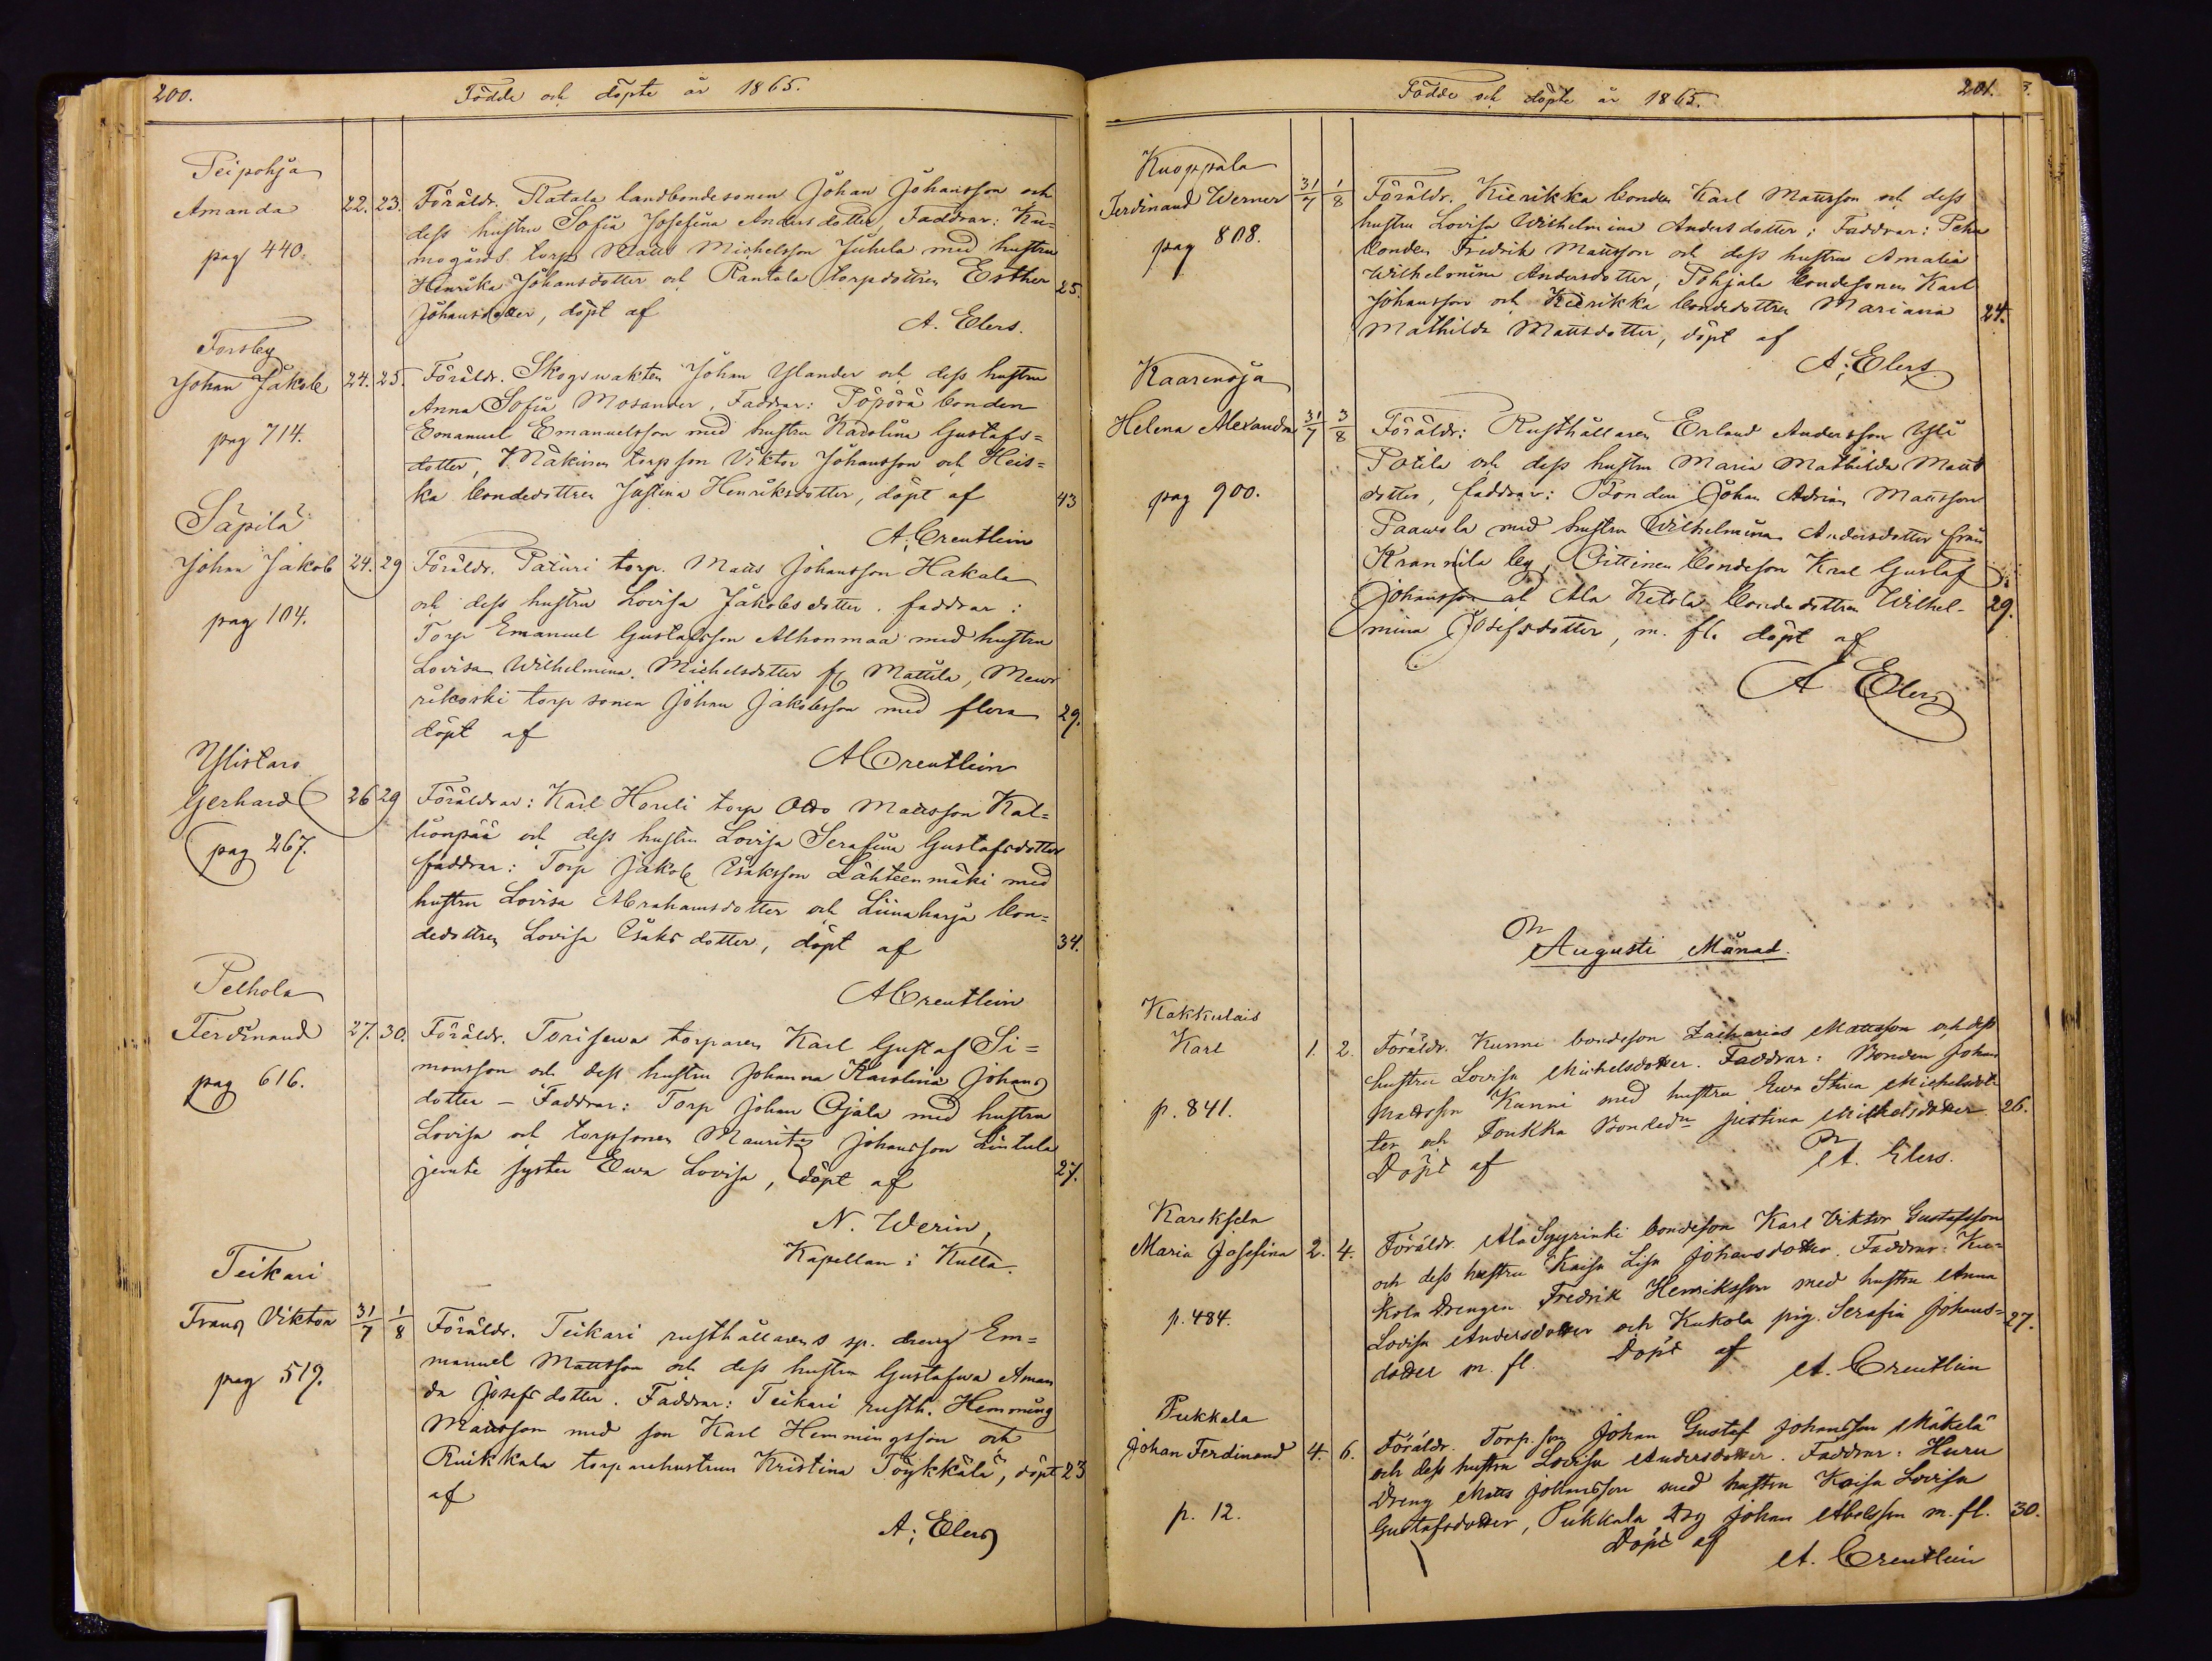 200.
Födde och döpte år 1865.
Peipohja
Amanda 22. 23. Föräldr. Ratala landbondesonen Johan Johansson och
dess hustru Sofia Josefina Andersdotter, Faddrar: Ku=
pag 440. mogårds torp Matts Michelsson Juhela med hustru
Henrika Johansdotter och Rantala torpdottren Esther 25.
Johansdotter, döpt af
A. Elers.
Forsby
Johan Jakob 24. 25. Föräldr. Skogswakten Johan Ylander och dess hustru
Anna Sofia Mosander, Faddrar: Pöpörä bonden
pag 714. Emanuel Emanuelsson med hustru Karolina Gustafs=
dotter, Mäkinen torpson Viktor Johansson och Heis=
ka bondedottren Justina Henriksdotter, döpt af 43
A. Creutlein
Säpilä
Johan Jakob 24. 29 Föräldr. Päturi torp. Matts Johansson Hakala
och dess hustru Lovisa Jakobsdotter. faddrar:
pag 104. Torp Emanuel Gustafsson Alhonmaa med hustru
Lovisa Wilhelmina Michelsdotter fr Mattila, Meur
rikoski torpsonen Johan Jakobsson med flera 29.
döpt af
A Creutlein
Ylistaro
Gerhard 26 29 Föräldrar: Karl Horeli torp Otto Mattsson Kal=
lionpää och dess hustru Lovisa Serafina Gustafsdotter
pag 267. faddrar: Torp Jakob Isaksson Lähteenmäki med
hustru Lovisa Abrahamsdotter och Liinaharja bon=
dedottren Lovisa Isaksdotter, döpt af 34.
A Creutlein
Pelhola
Ferdinand 27. 30. Föräldr. Torisewa torparen Karl Gustaf Si=
monsson och dess hustru Johanna Karolina Johans
pag 616. dotter – Faddrar: Torp Johan Ojala med hustru
Lovisa och torpsonen Mauritz Johansson Lintula
jemte syster Ewa Lovisa, döpt af 27.
N. Werin,
Kapellan i Kulla.
Teikari
Frans Viktor 31/7 1/8 Föräldr. Teikari rusthållarens sp. dreng Em=
manuel Mattsson och dess hustru Gustafwa Aman
pag 519. da Josefsdotter. Faddrar: Teikari rusth. Hemming
Mattsson med son Karl Hemmingsson och
Ruikkala torparehustrun Kristina Töykkälä, döpt 23
af
A. Elers
Födde och döpte år 1865.
201.
Kuoppala
Ferdinand Werner 31/7 1/8 Föräldr. Kierikka bonden Karl Mattsson och dess
hustru Lovisa Wilhelmina Andersdotter; Faddrar: Peha
pag 808. bonden Fredrik Mattsson och dess hustru Amalia
Wilhelmina Andersdotter, Pohjala bondesonen Karl
Johansson och Kierikka bondedottren Mariana 24.
Mathilda Mattsdotter, döpt af
A. Elers
Kaarenoja
Helena Alexandra 31/7 3/8 Föräldr: Rusthållaren Erland Andersson Yli
Potila och dess hustru Maria Mathilda Matts
pag 900. dotter, faddrar: Bonden Johan Adrian Mattsson
Paawola med hustru Wilhelmina Andersdotter från
Krannila by, Oittinen bondeson Karl Gustaf
Johansson och Ala Ketola bondedottren Wilhel- 29.
mina Josefsdotter, m. fl. döpt af
A Elers
Augusti Månad.
Kakkulais
Karl 1. 2. Föräldr. Kunni bondeson Zacharias Mattsson och dess
hustru Lovisa Michelsdotter. Faddrar: Bonden Johan
p. 841. Mattsson Kunni med hustru Ewa Stina Michelsdot
ter och Toukka Bondedr Justina Michelsdotter 26.
Döpt af A. Elers.
Kareksela
Maria Josefina 2. 4. Föräldr. Ala Sypyrinki bondeson Karl Viktor Gustafsson
och dess hustru Kaisa Lisa Johansdotter. Faddrar: Ku=
p. 484. kola Drengen Fredrik Henriksson med hustru Anna
Lovisa Andersdotter och Kukola pig. Serafia Johans= 27.
dotter m. fl. Döpt af
A. Creutlein
Pukkala
Johan Ferdinand 4. 6. Föräldr. Torpson Johan Gustaf Johansson Mäkelä
och dess hustru Lovisa Andersdotter. Faddrar: Huru
Dreng Matts Johansson med hustru Kaisa Lovisa
p. 12. Gustafsdotter, Pukkala Drg Johan Abelsson m. fl. 30.
Döpt af
A. Creutlein